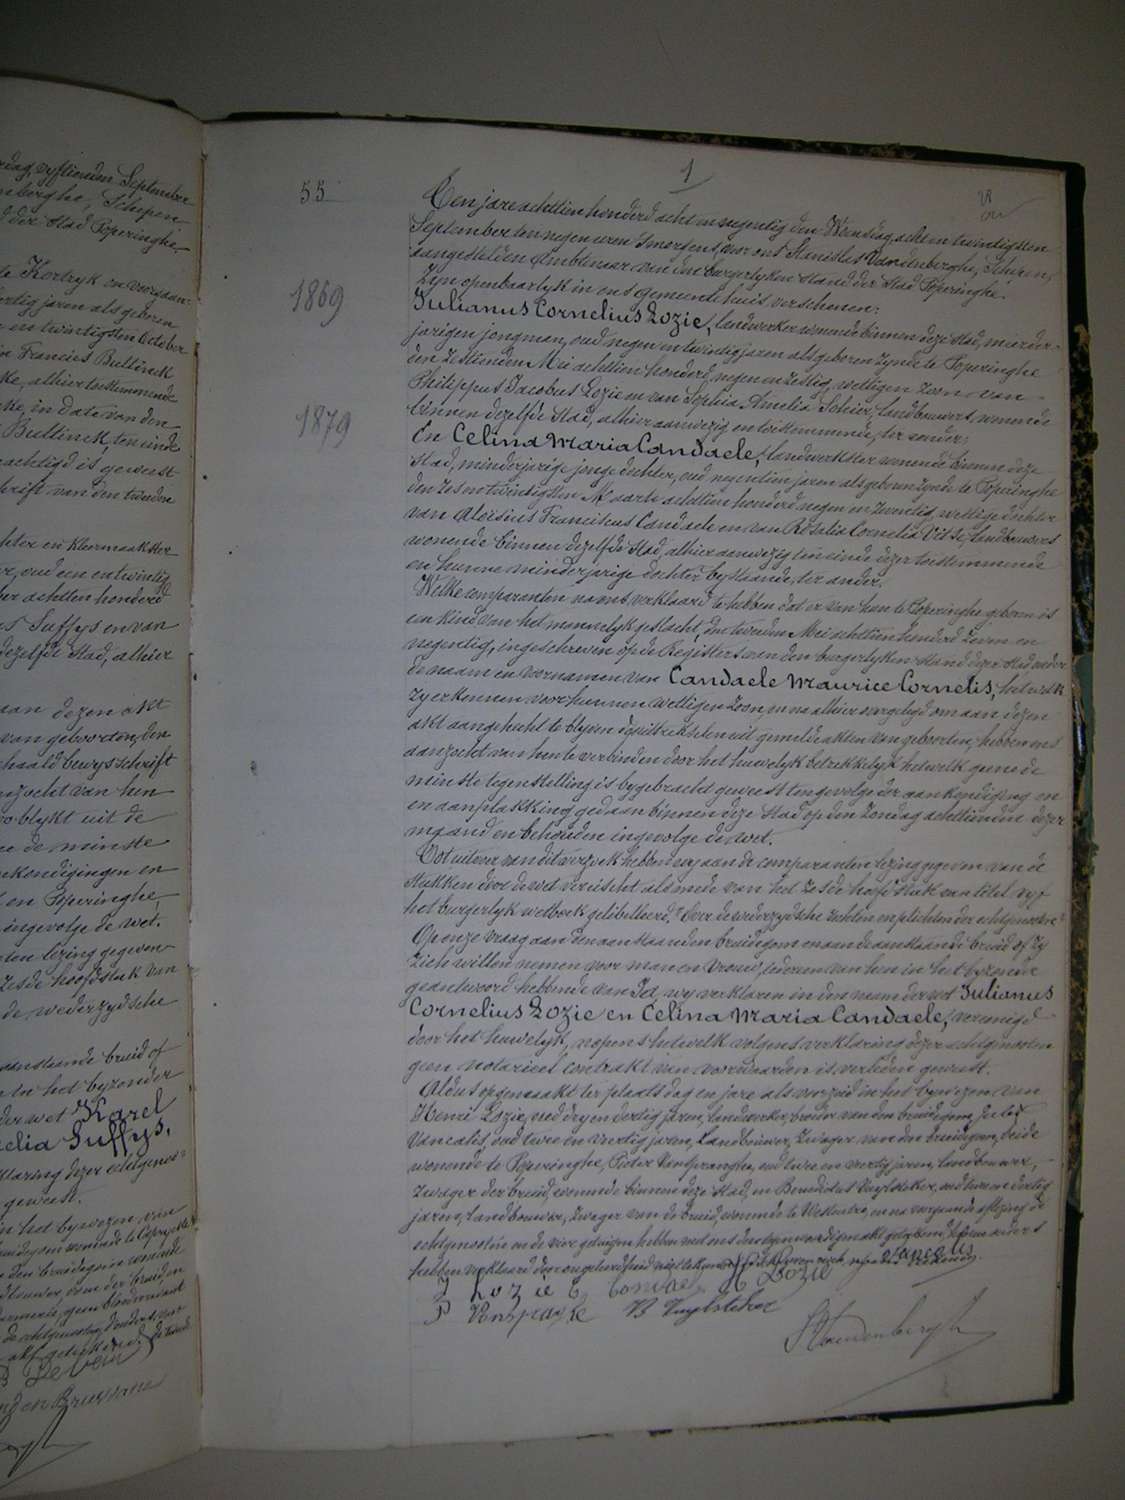 rdag, vyftienden Septembre
nberghe, Schepen
d der Stad Poperinghe
te Kortryk en voorgaan
dertig jaren als geboren
en twintigsten October
in Francies Bultinck
ke, alhier toestemmende
ke, in date van den
Bultinck, ten einde
achtigd is geweest
hrift van den tweeden
hter en Kleermaakster
er, oud een en twintig
ber achttien honderd
es Suffys en van
dezelfde Stad, alhier
aan dezen akt
van geboorten, den
haald bewysschrift
nzocht van hen
oo blykt uit de
ne de minste
nkondigingen en
en Poperinghe,
ingevolge de wet.
ten lezing gegeven
Zesde hoofdstuk van
de wederzydsche
aanstaande bruid of
in het byzonder
der wet Karel
elia Suffys,
klaring dezer echtgenoo=
geweest.
in het bywezen van
De Vein
1
55
Ten jare achttien honderd acht en negentig den Woensdag acht en twintigsten
September ten negen uren 's morgens, voor ons Stanislas Vandenberghe, Schepen,
aangestelden Ambtenaar van den burgerlyken Stand der Stad Poperinghe.
Zyn openbaarlyk in ons gemeentehuis verschenen:
1869
Julianus Cornelius Lozie, landwerker wonende binnen deze Stad, meerder-
jarigen jongman, oud negen en twintig jaren als geboren zynde te Poperinghe
den Zestienden Mei achttien honderd negen en zestig, wettigen zoon van
Philippus Jacobus Lozie en van Sophia Amelia Schier, landbouwers, wonende
1879
binnen dezelfde Stad, alhier aanwezig en toestemmende, ter eender;
En Celina Maria Candaele, landwerkster wonende binnen deze
Stad, minderjarige jonge dochter, oud negentien jaren als geboren zynde te Poperinghe
den Zes en twintigsten Maarte achttien honderd negen en zeventig, wettige dochter
van Aloisius Franciscus Candaele en van Rosalia Cornelia Vitse, landbouwers
wonende binnen dezelfde Stad, alhier aanwezig ten einde dezer toestemmende
en hunne minderjarige dochter bystaande, ter ander.
Welke comparanten na ons verklaard te hebben dat er van hun te Poperinghe geboren is
een kind van het mannelyk geslacht, den tweeden Mei achttien honderd zeven en
negentig, ingeschreven op de Registers van den burgerlyken stand dezer stad onder
de naam en voornamen van Candaele Maurice Cornelis, hetwelk
zy erkennen voor hunnen wettigen zoon, en na alhier overgelegd om aan dezen
akt aangehecht te blyven de uittreksels uit gemelde akten van geboorten, hebben ons
aanzocht van hen te verbinden door het huwelyk betrekkelyk hetwelk geene de
minste tegenstelling is bygebracht geweest ten gevolge der aankondiging en
en aanplakking gedaan binnen deze Stad op den Zondag achttienden dezer
maand en behouden ingevolge de wet.
Tot uitvoer van dit verzoek hebben wy aan de comparanten lezing gegeven van de
stukken door de wet vereischt alsmede van het zesde hoofdstuk van titel vyf
het burgerlyk wetboek getituleerd: Over de wederzydsche rechten en plichten der echtgenooten
Op onze vraag aan den aanstaanden bruidegom en aan de aanstaande bruid of zy
zich willen nemen voor man en vrouw, iedereen van hen in het byzonder
geantwoord hebbende van Ja, wy verklaren in den naam der wet Julianus
Cornelius Lozie en Celina Maria Candaele, vereenigd
door het huwelyk, nopens hetwelk volgens verklaring dezer echtgenooten
geen notarieel contrakt van voorwaarden is verleden geweest.
Aldus opgemaakt ter plaats dag en jare als voorzeid in het bywezen van
Henri Lozie, oud dry en dertig jaren, landwerker, broeder van den bruidegom,
Vancalis, oud twee en veertig jaren, Landbouwer, Zwager van den bruidegom, beide
wonende te Poperinghe, Pieter Vanspranghe, oud twee en veertig jaren, landbouwer,
Zwager der bruid, wonende binnen deze Stad, en Benedictus Vuylsteker, oud twee en dertig
jaren, Landbouwer, Zwager van de bruid, wonende te Westoutre, en na voorgaande aflezing de
echtgenooten en de vier getuigen hebben met ons den tegenwoordigen akt geteekend, de
hebben verklaard door ongeleerdheid niet te kunnen
J Lozie C, Candaele H Lozie Vancalis
P Vanspranghe B Vuylsteker
SVandenberghe